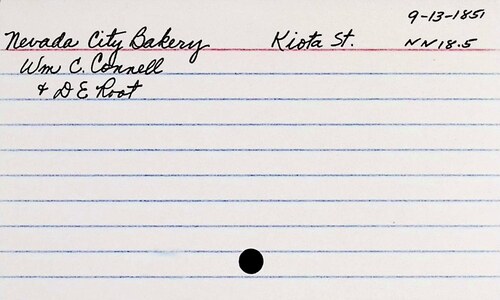 9-13-1851
Nevada City Bakery Kiota St. NN18.5
Wm C. Connell
& D E Root